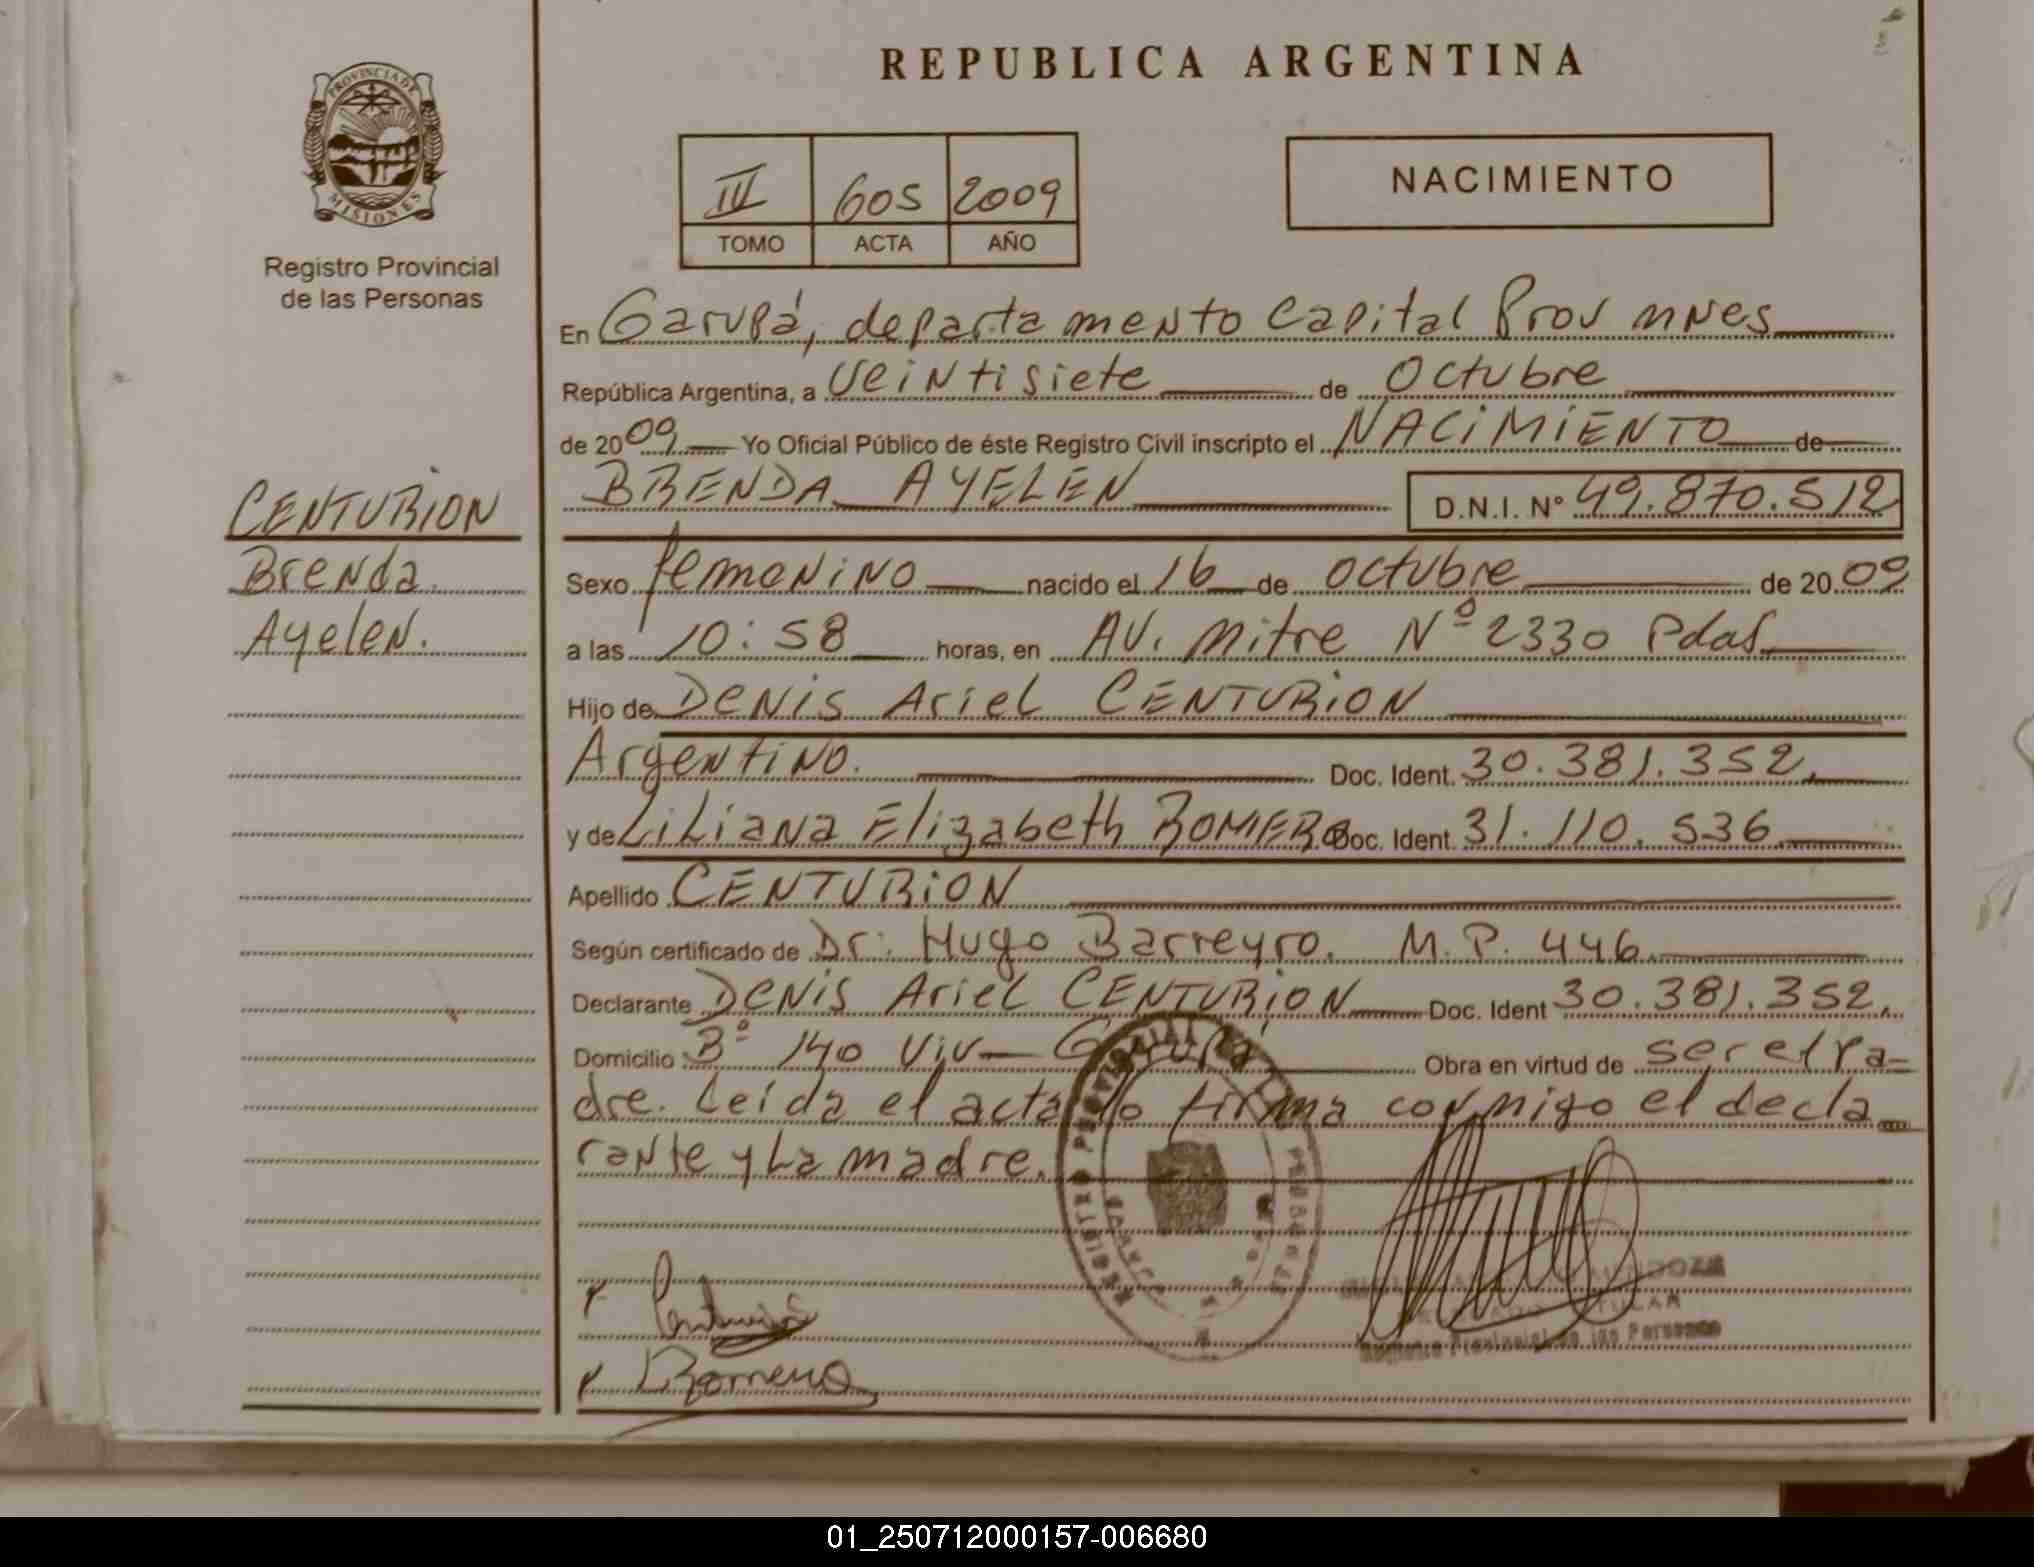 REPUBLICA ARGENTINA
PROVINCIA DE
MISIONES
Registro Provincial
de las Personas
III 605 2009
TOMO ACTA AÑO
NACIMIENTO
En Garupá, departamento Capital Prov mnes
República Argentina, a veintisiete de octubre
de 2009 Yo Oficial Público de éste Registro Civil inscripto el NACIMIENTO de
BRENDA AYELEN D.N.I. Nº 49.870.512
CENTURION
Brenda
Ayelen.
Sexo femenino nacido el 16 de octubre de 2009
a las 10:58 horas, en AV. mitre Nº 2330 Pdas
Hijo de DENIS Ariel CENTURION
Argentino. Doc. Ident. 30.381.352.
y de LiLiana Elizabeth ROMERO Doc. Ident. 31.110.536
Apellido CENTURION
Según certificado de Dr: Hugo Barreyro. M.P. 446
Declarante DENIS Ariel CENTURION Doc. Ident 30.381.352.
Domicilio Bº 140 Viv- Garupá Obra en virtud de ser el pa-
dre. Leída el acta lo firma conmigo el decla
rante y La madre.
REGISTRO PROVINCIAL DE LAS PERSONAS
Centurión
Romero
TITULAR
Registro Provincial de las Personas
01_250712000157-006680